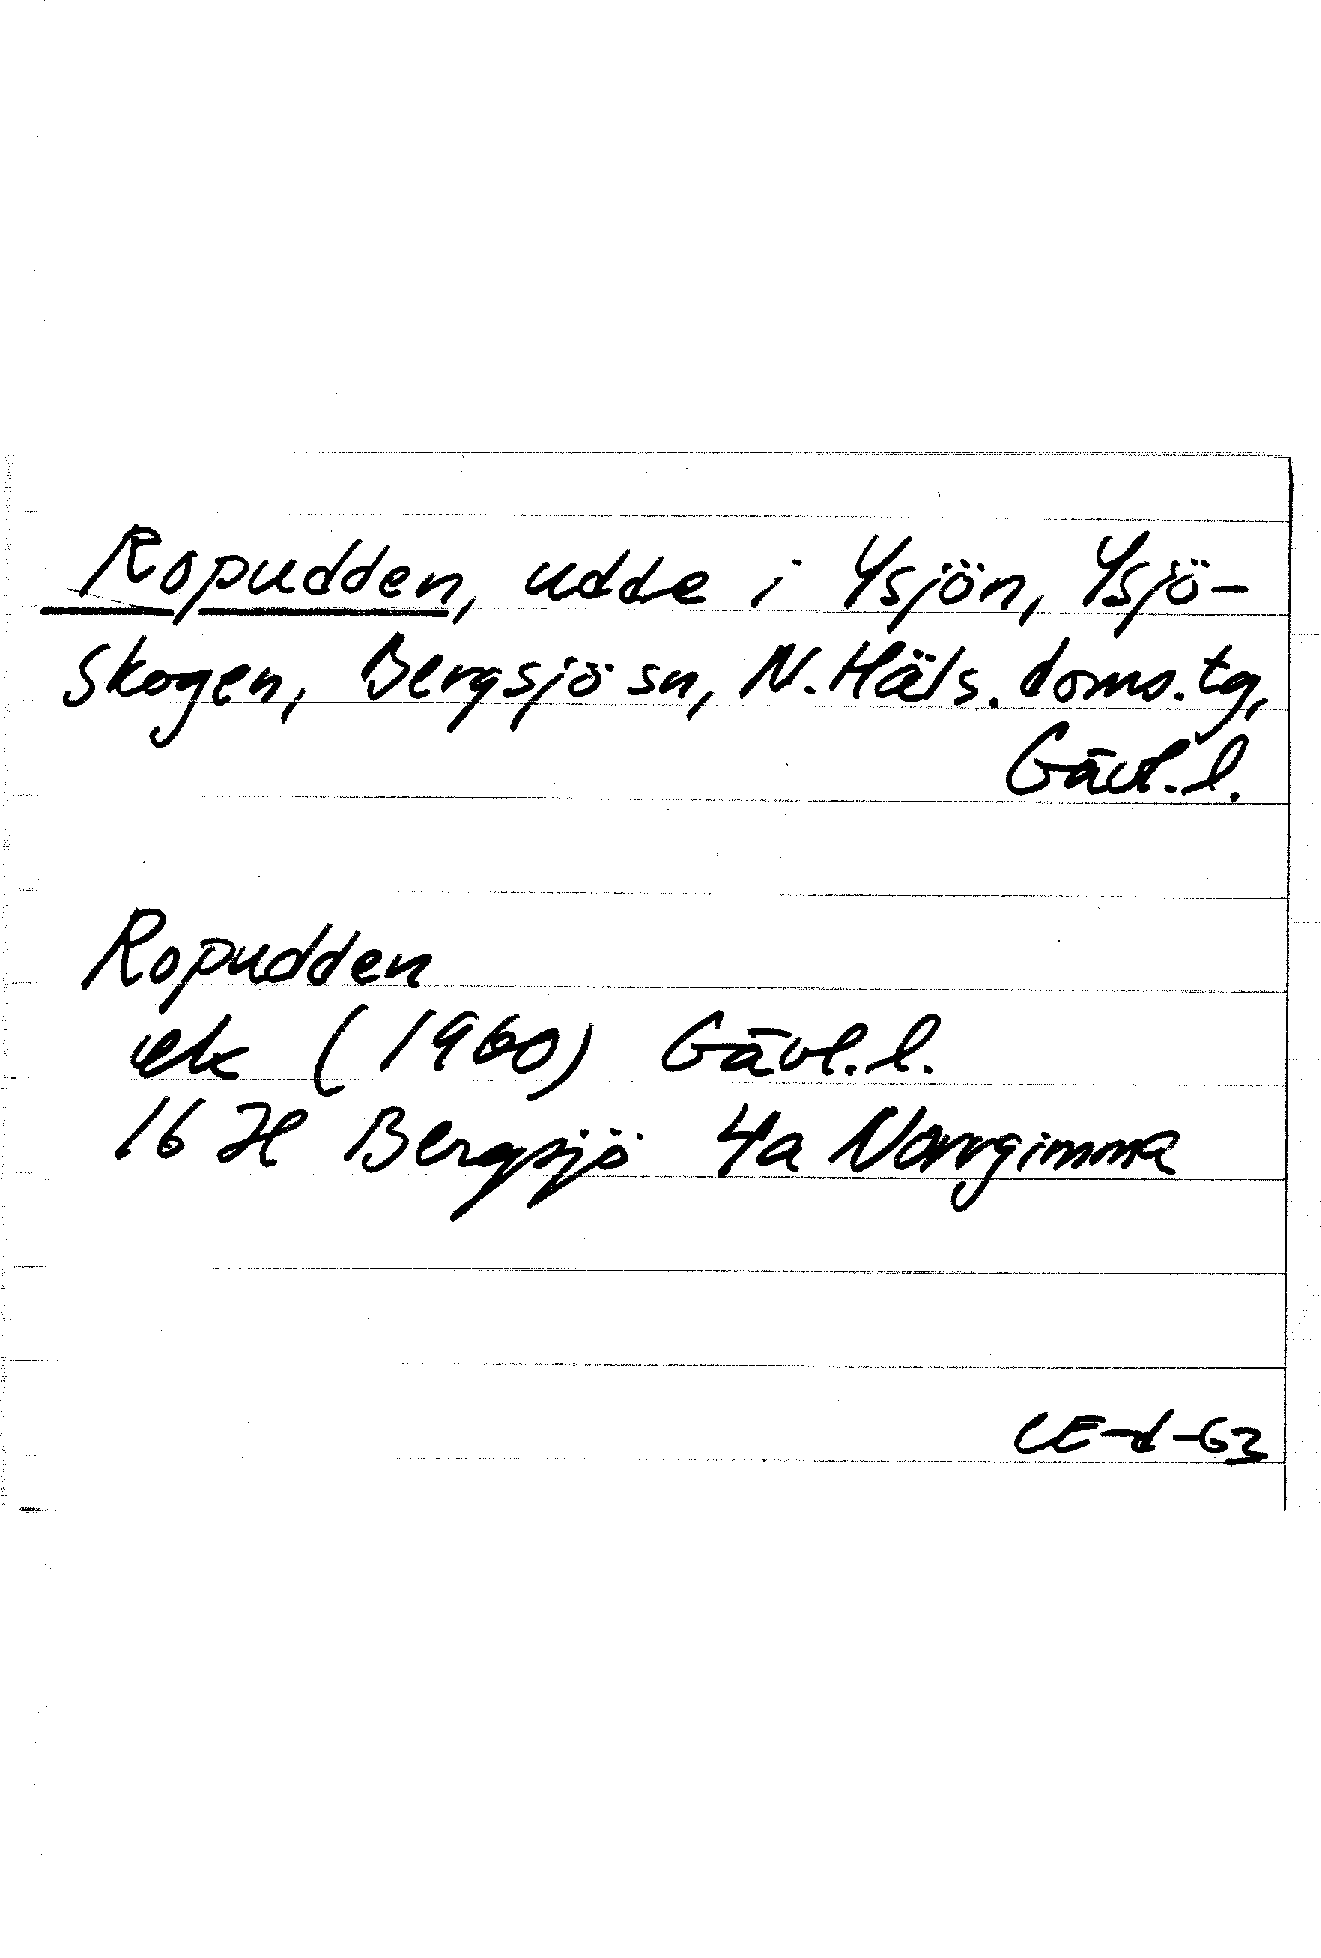 Ropudden, udde i Ysjön, Ysjö-
skogen, Bergsjö sn, N. Häls. doms. tg,
Gävl. l.
Ropudden
ek (1960) Gävl. l.
16 H Bergsjö 4a Norrgimma
CE-d-63